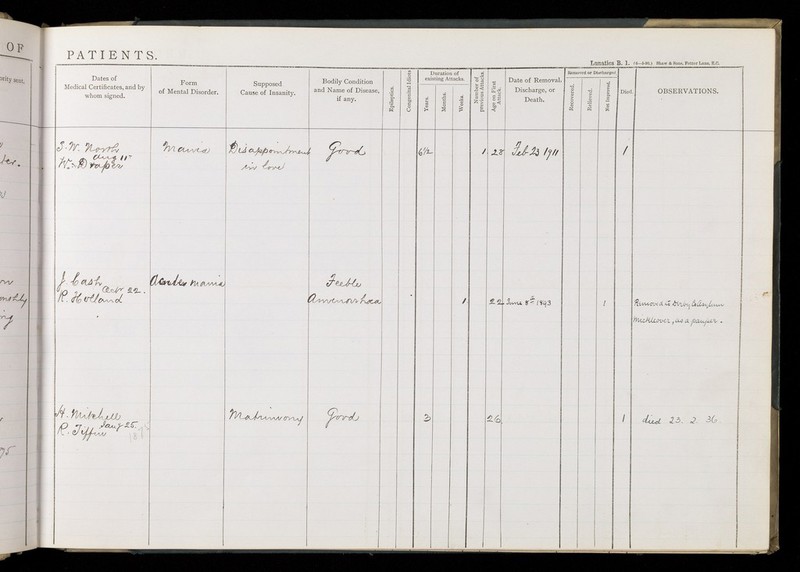 OF
PATIENTS.
Lunatics B. 1. Shaw & Sons, Fetter Lane, E.C.
Dates of
Medical Certificates, and by
whom signed.
Form
of Mental Disorder.
Supposed
Cause of Insanity.
Bodily Condition
and Name of Disease,
if any.
Epileptics.
Congenital Idiots
Duration of
existing Attacks.
Years.
Months.
Weeks.
Number of
previous Attacks.
Age on First
Attack.
Date of Removal,
Discharge, or
Death.
Removed or Discharged
Recovered.
Relieved.
Not Improved.
Died.
OBSERVATIONS.
J. W. North Mania Disappointment Good 6½ 1 28 Feb 23 1911 1
Aug 11
Wm Draper in love
J Cash Acute mania Feeble
22.
R. Holland Amenorrhœa 1 22 June 8th 1893 1 Removed to Derby Co Asylum
Mickleover, as a pauper.
H. Mitchell Matrimony Good 3 26 1 died 23. 2. 36.
Jany 25
R. Tiffin